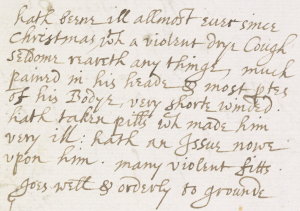 hath beene ill allmost ever since
Christmas, wth a violent drye Cough
seldome reareth any thinge, much
pained in his heade & most ptes
of his Bodye, very shorte winded.
hath taken pills wh made him
very ill: hath an Issue nowe
upon him. many violent fitts.
goes well & orderly to grounde